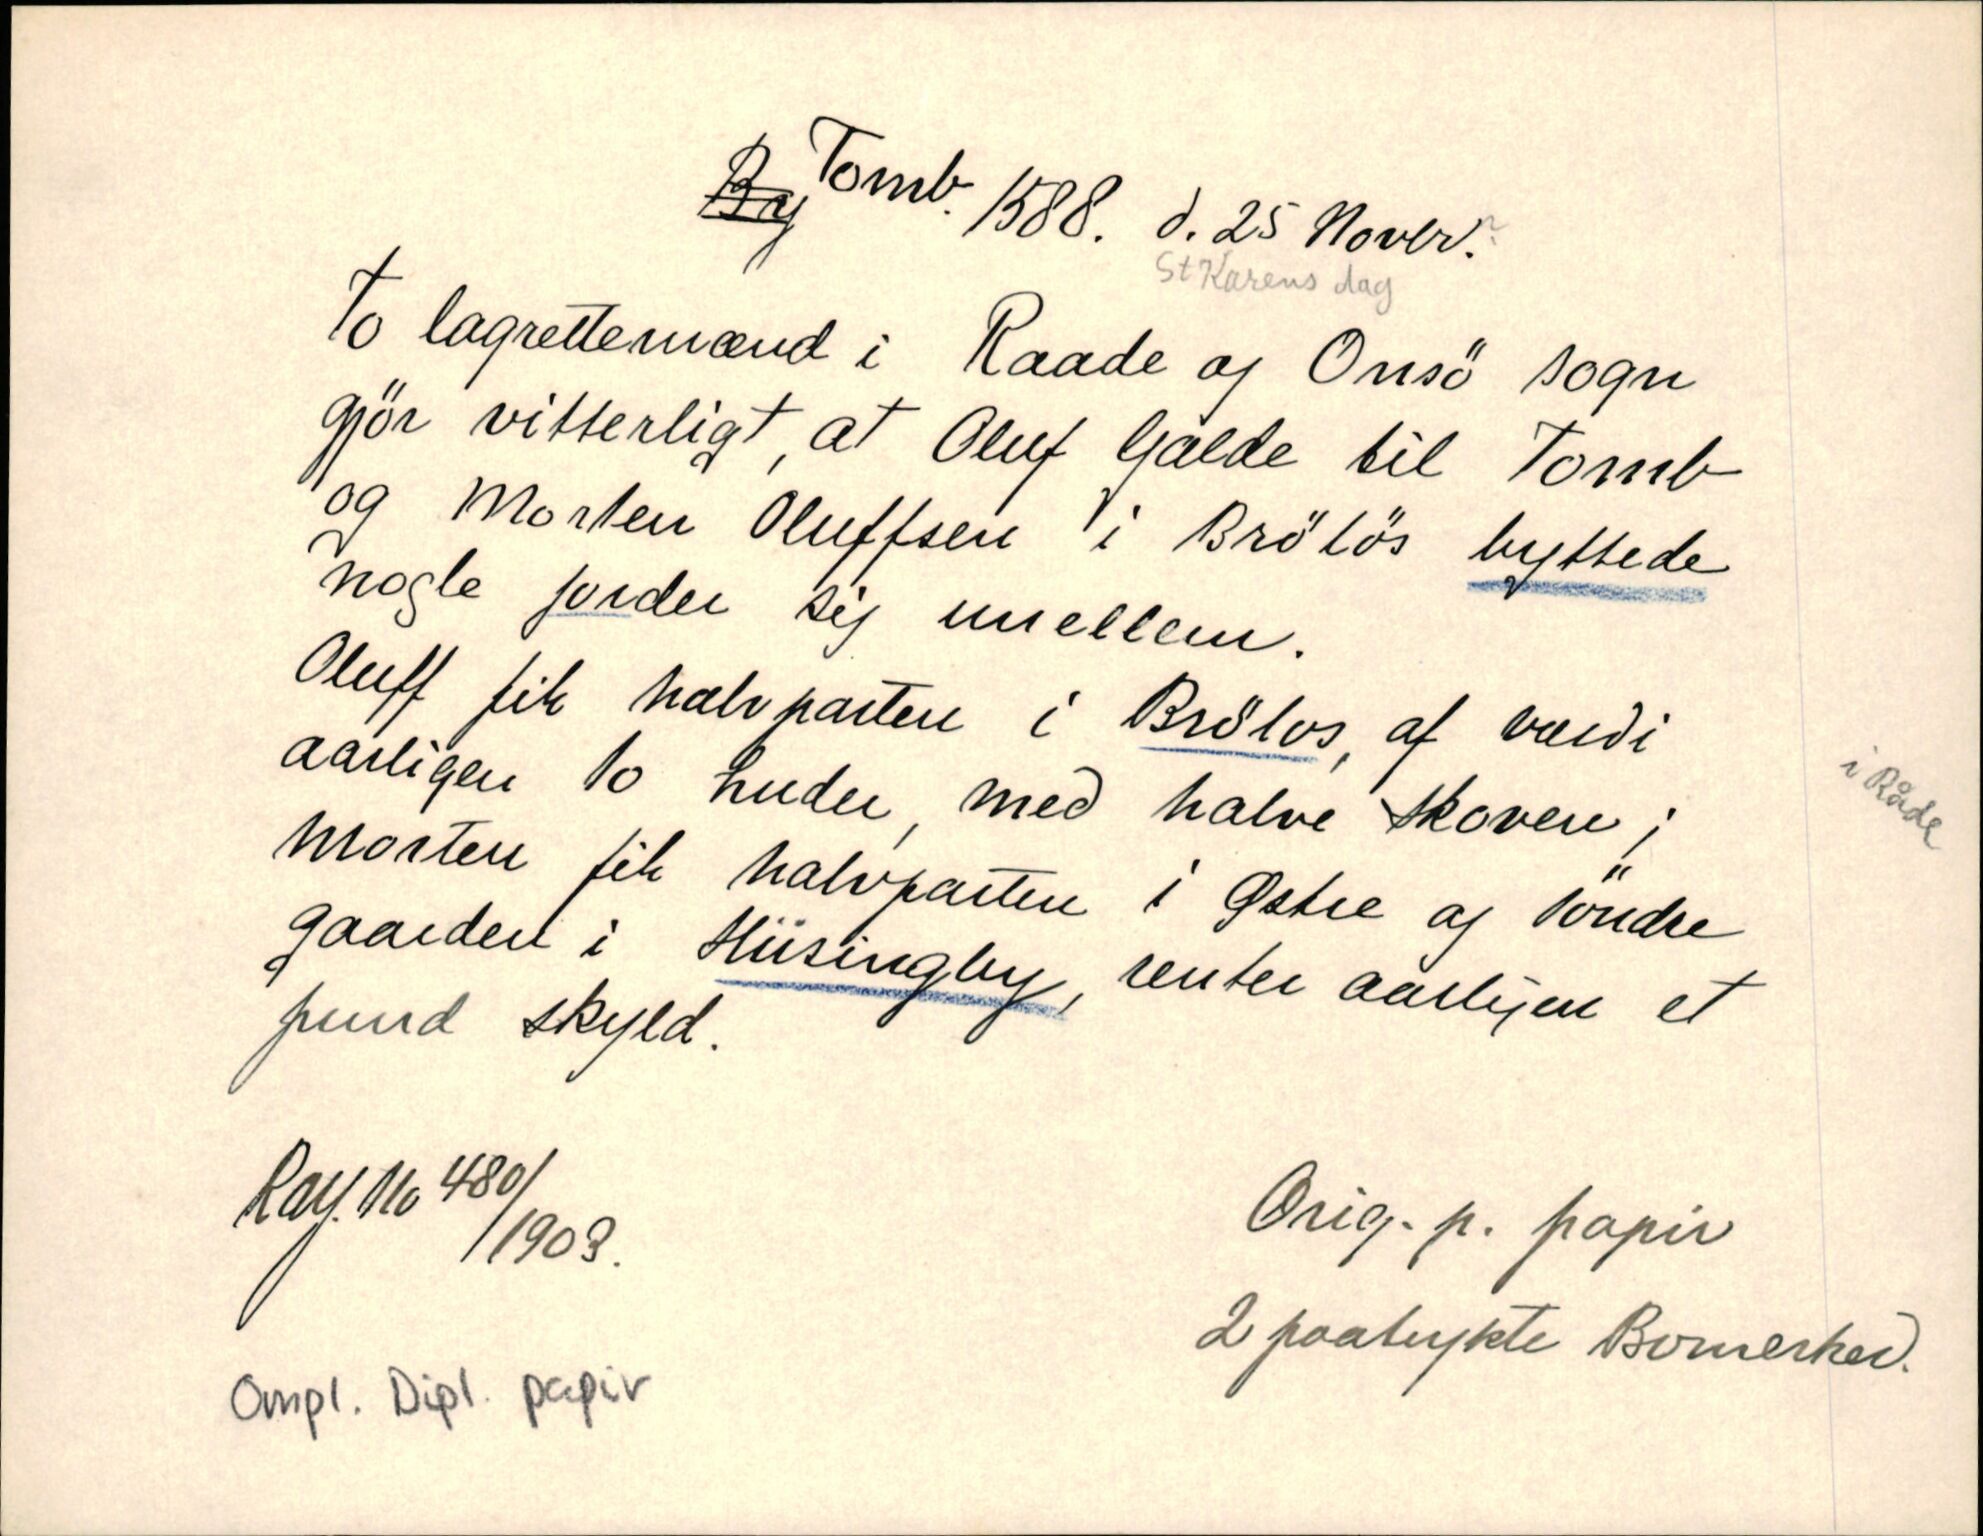 By Tomb. 1588. d. 25 Novbr.?
St Karens dag
To lagrettemænd i Raade og Onsö sogn
gjör vitterligt, at Oluf Galde til Tomb
og Morten Oluffsen i Brötös byttede
nogle jorder sig imellem.
Oluff fik halvparten i Brötos, af værdi
aarligen to huder, med halve skoven;
i Råde
Morten fik halvparten i Østre og söndre
gaarden i Hüsingby, renter aarligen et
pund skyld.
Ray. No 480/1903.
Orig. p. papir
2 paatrykte Bomerker.
Ompl. Dipl. papir